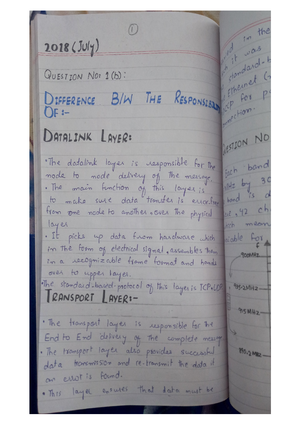 1
2018 (July)
QUESTION NO: 1 (b):
DIFFERENCE B/W THE RESPONSIBILITY
OF:-
DATALINK LAYER:
• The datalink layer is responsible for the
node to node delivery of the message.
• The main function of this layer is
to make sure data transfer is error free
from one node to another, over the physical
layer.
• It picks up data from hardware which
in the form of electrical signal, assembles them
in a recognizable frame format and hands
over to upper layer.
• The standard-based-protocol of this layer is
TRANSPORT LAYER:-
• The transport layer is responsible for the
End to End delivery of the complete message.
• The transport layer also provides successful
data transmission and re-transmit the data if
an error is found.
• This layer ensures that data must be
in the
it was
standard-b
Ethernet
for p
QUESTION NO
Each band
by 30
band is
ch